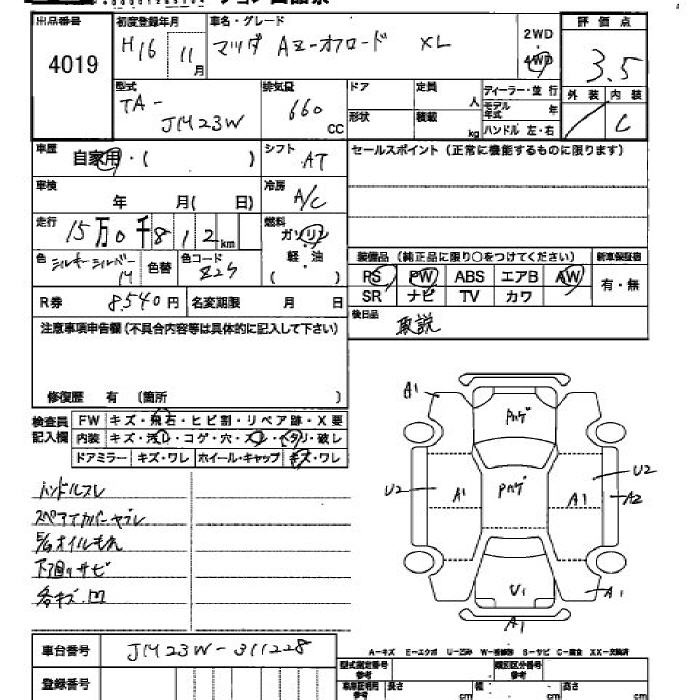 出品番号 初度登録年月 車名・グレード 評価点
4019 H16 11月 マツダ AZ-オフロード XL 2WD・4WD 3.5
型式 排気量 ドア 定員 人 ディーラー・並行 外装 内装
TA-JM23W 660cc 形状 積載 kg モデル年式 年 C
ハンドル 左・右
車歴 自家用・( ) シフト AT セールスポイント(正常に機能するものに限ります)
車検 年 月( 日) 冷房 A/C
走行 15万0千812km 燃料 ガソリン・軽・油 ( )
色 シルキーシルバーM 色替 色コード Z2S 装備品(純正品に限り○をつけてください) 新車保証書
PS PW ABS エアB AW 有・無
R券 8540円 名変期限 月 日 SR ナビ TV カワ
後日品 取説
注意事項申告欄(不具合内容等は具体的に記入して下さい)
修復歴 有 (箇所 )
検査員記入欄 FW キズ・飛石・ヒビ割・リペア跡・X要
内装 キズ・汚レ・コゲ・穴・スレ・ヘタリ・破レ
ドアミラー キズ・ワレ ホイール・キャップ キズ・ワレ
ハンドルスレ
スペアタイヤカバーヤブレ
E/Gオイルもれ
下廻りサビ
各キズ.凹
A1
Pハゲ
U2 A1 Pハゲ A1 U2 A2
U1 A1
A1
A-キズ E-エクボ U-凹ミ W-補修跡 S-サビ C-腐食 XX-交換済
車台番号 JM23W-311228
型式指定番号 参考 類別区分番号 参考
登録番号 長さ cm 幅 cm 高さ cm